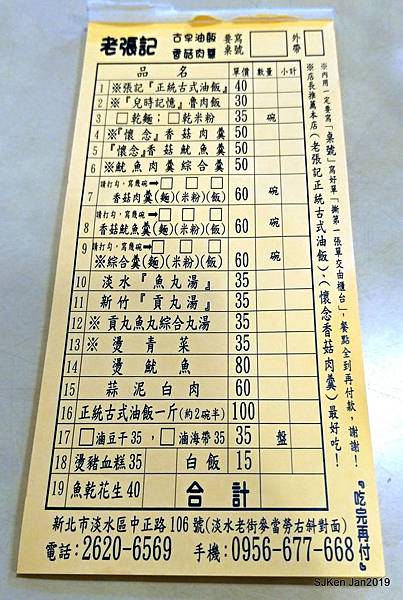 老張記 古早油飯 香菇肉羹 要寫桌號 □ 外帶 □
品名 單價 數量 小計
1 ※張記『正統古式油飯』 40
2 ※『兒時記憶』魯肉飯 30
3 □乾麵，□乾米粉 35 碗
4 『懷念』香菇肉羹 50
5 『懷念』香菇魷魚羹 50
6 ※魷魚肉羹綜合羹 50
7 請打勾，寫幾碗➡□ □ □ 香菇肉羹(麵)(米粉)(飯) 60 碗
8 請打勾，寫幾碗➡□ □ □ 香菇魷魚羹(麵)(米粉)(飯) 60 碗
9 請打勾，寫幾碗➡□ □ □ ※綜合羹(麵)(米粉)(飯) 60 碗
10 淡水『魚丸湯』 35
11 新竹『貢丸湯』 35
12 ※貢丸魚丸綜合丸湯 35
13 ※燙青菜 35
14 燙魷魚 80
15 蒜泥白肉 60
16 正統古式油飯一斤(約2碗半) 100
17 □滷豆干35，□滷海帶35 35 盤
18 燙豬血糕35 白飯 15
19 魚乾花生40 合計
※內用一定要寫「桌號」寫好單「撕第一張單交由櫃台」，餐點全到再付款，謝謝！
※店長推薦本店(老張記正統古式油飯)、(懷念香菇肉羹)最好吃！
『吃完再付』
新北市淡水區中正路106號(淡水老街麥當勞右斜對面)
電話：2620-6569 手機：0956-677-668
SJKen Jan2019